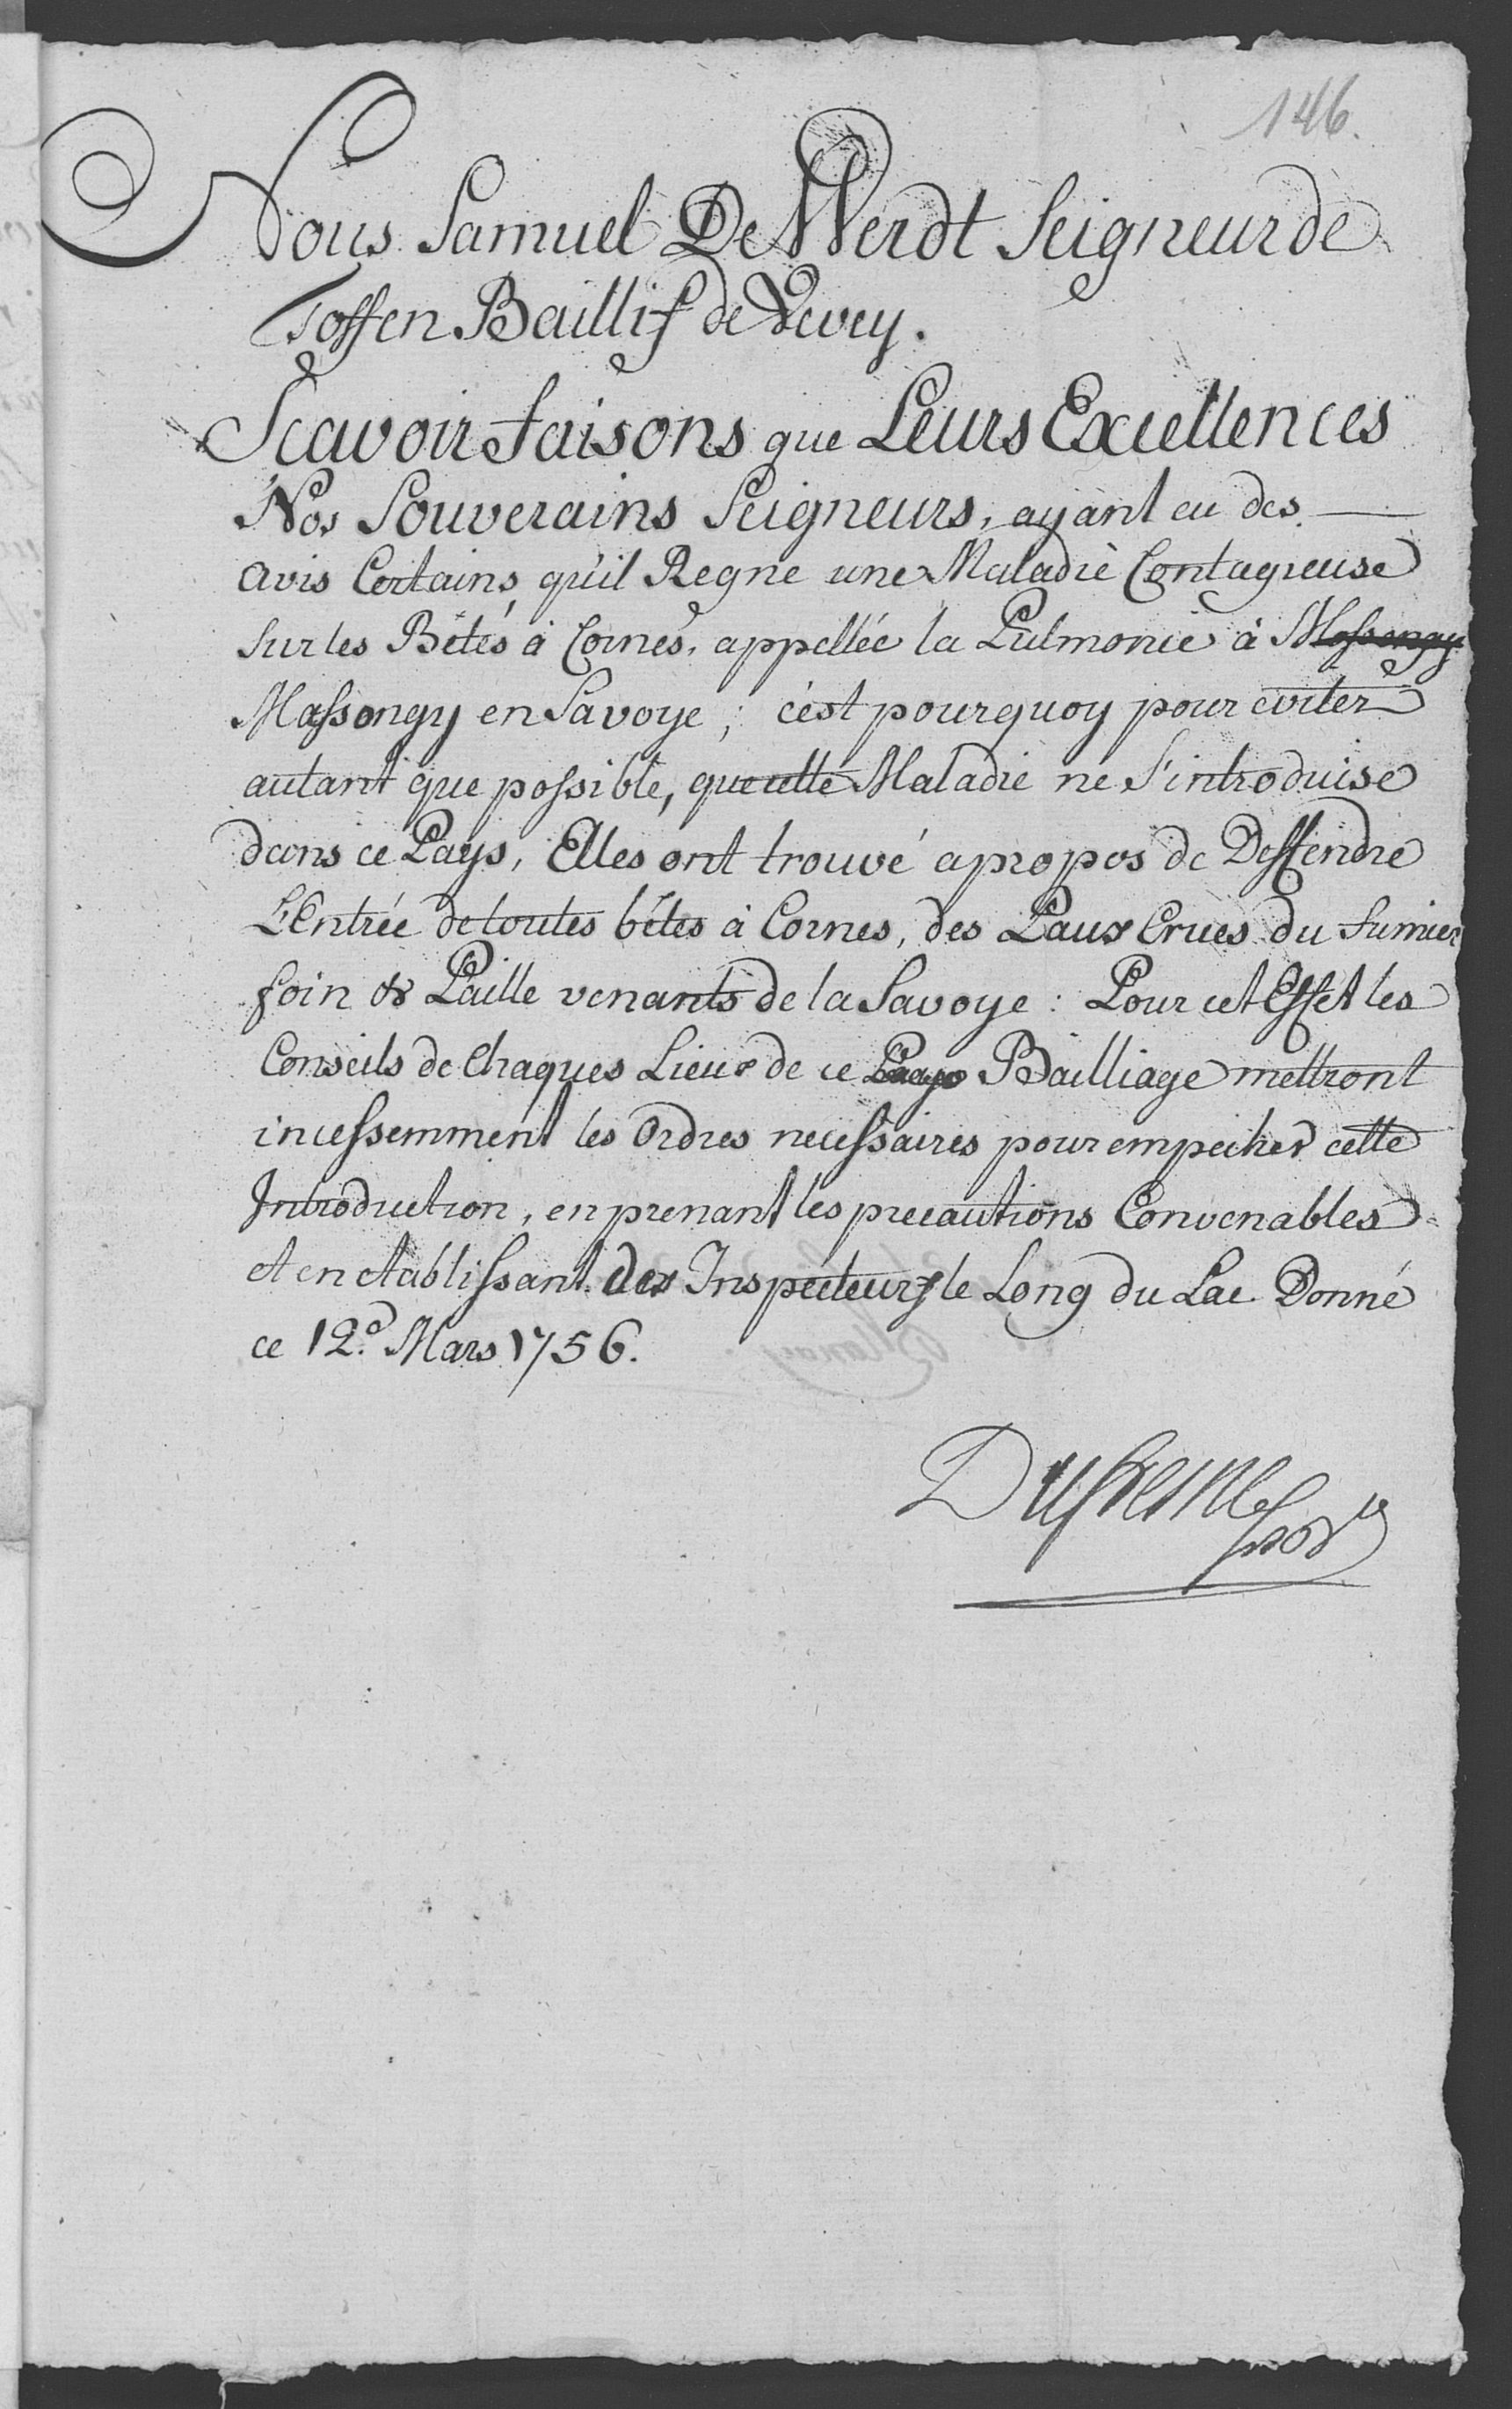 146.
Nous Samuel De Werdt Seigneur de
Toffen Baillif de Vevey.
Scavoir faisons que Leurs Excellences
Nos Souverains Seigneurs, ayant eu des
avis Certains, qu'il Regne une Maladie Contagieuse
sur les Bêtes à Cornes, appellée la Pulmonie à Massongy
Massongy en Savoye; c'est pourquoy pour eviter
autant que possible, que cette Maladie ne s'introduise
dans ce Pays, Elles ont trouvé apropos de Deffendre
L'Entrée de toutes bêtes à Cornes, des Peaux Crues du fumier
foin & Paille venants de la Savoye: Pour cet Effet les
Conseils de Chaques Lieux de ce Pays Bailliage mettront
incessemment les Ordres necessaires pour empecher cette
Introduction, en prenant les precautions Convenables
et en etablissant des Inspecteurs le Long du Lac Donné
ce 12.e Mars 1756.
Dufresne